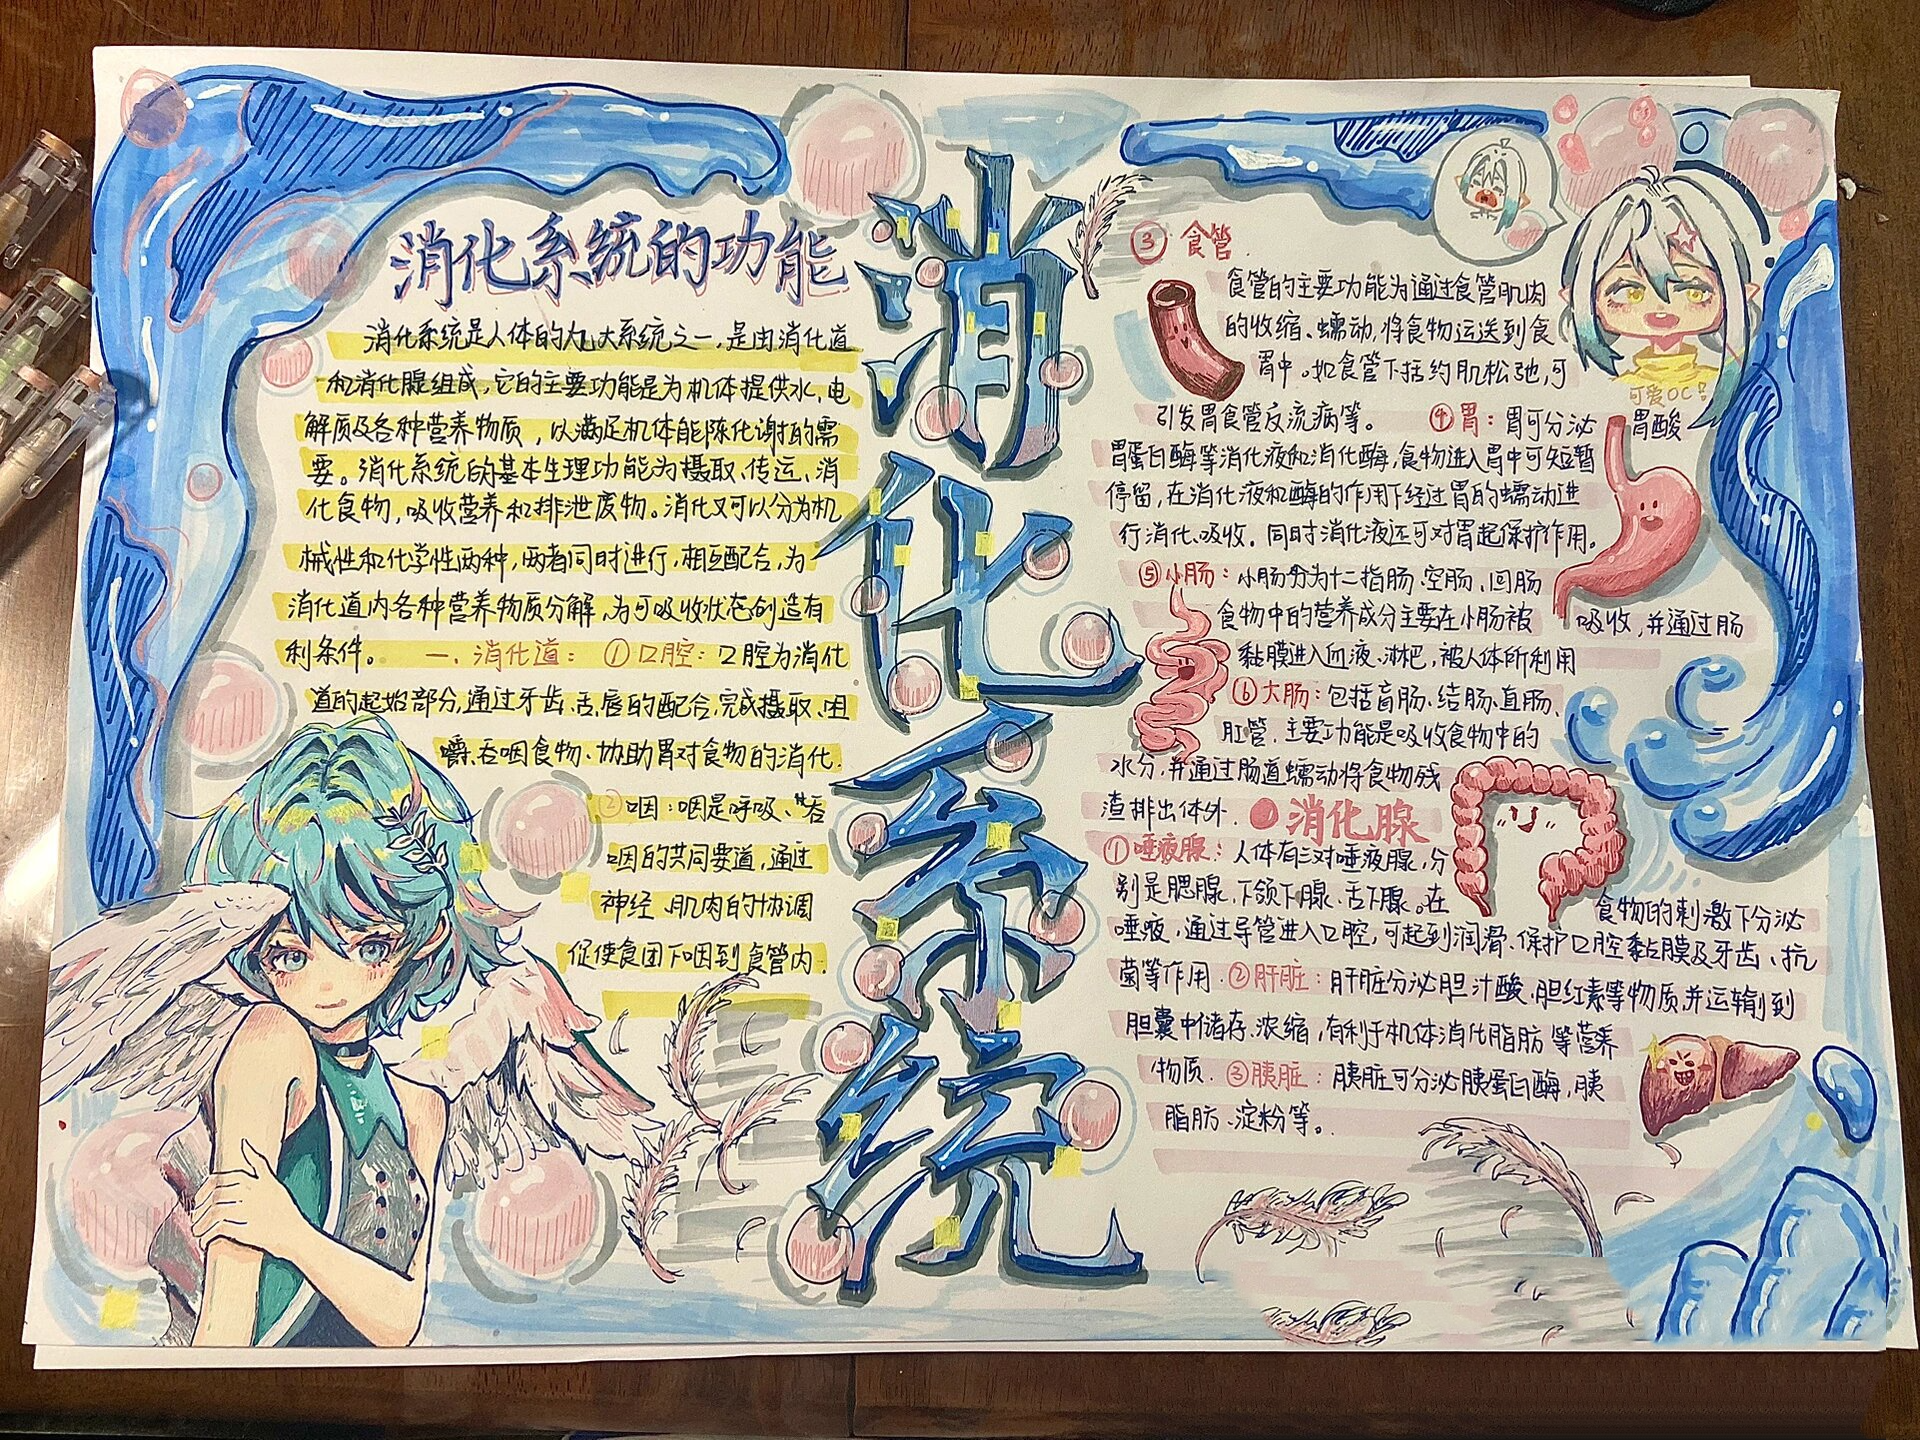 消化系统
消化系统的功能
消化系统是人体的九大系统之一,是由消化道
和消化腺组成,它的主要功能是为机体提供水,电
解质及各种营养物质,以满足机体能陈代谢的需
要。消化系统的基本生理功能为摄取、传运、消
化食物,吸收营养和排泄废物。消化又可以分为机
械性和化学性两种,两者同时进行,相互配合,为
消化道内各种营养物质分解,为可吸收状态创造有
利条件。 一、消化道: ①口腔: 口腔为消化
道的起始部分,通过牙齿、舌、唇的配合,完成摄取、咀
嚼、吞咽食物、协助胃对食物的消化.
②咽:咽是呼吸、吞
咽的共同要道,通过
神经、肌肉的协调
促使食团下咽到食管内.
③ 食管
食管的主要功能为通过食管肌肉
的收缩、蠕动,将食物运送到食
胃中。如食管下括约肌松弛,可
引发胃食管反流病等。 ④胃:胃可分泌 胃酸
胃蛋白酶等消化液和消化酶,食物进入胃中可短暂
停留,在消化液和酶的作用下经过胃的蠕动进
行消化、吸收. 同时消化液还可对胃起保护作用。
⑤小肠:小肠分为十二指肠、空肠、回肠
食物中的营养成分主要在小肠被 吸收,并通过肠
黏膜进入血液、淋巴,被人体所利用
⑥大肠:包括盲肠、结肠、直肠、
肛管. 主要功能是吸收食物中的
水分,并通过肠道蠕动将食物残
渣排出体外. 消化腺
①唾液腺:人体有三对唾液腺,分
别是腮腺、下颌下腺、舌下腺。在 食物的刺激下分泌
唾液,通过导管进入口腔,可起到润滑、保护口腔黏膜及牙齿、抗
菌等作用.②肝脏:肝脏分泌胆汁酸、胆红素等物质,并运输到
胆囊中储存、浓缩,有利于机体消化脂肪等营养
物质.③胰脏:胰脏可分泌胰蛋白酶,胰
脂肪、淀粉等。
可爱OC